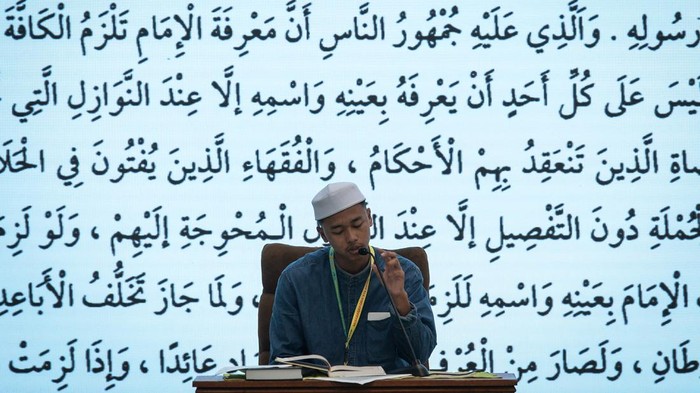 رَسُولِهِ . وَالَّذِي عَلَيْهِ جُمْهُورُ النَّاسِ أَنَّ مَعْرِفَةَ الْإِمَامِ تَلْزَمُ الْكَافَّةَ
يْسَ عَلَى كُلِّ أَحَدٍ أَنْ يَعْرِفَهُ بِعَيْنِهِ وَاسْمِهِ إلَّا عِنْدَ النَّوَازِلِ الَّتِي
الَّذِينَ تَنْعَقِدُ بِهِمْ الْأَحْكَامُ ، وَالْفُقَهَاءِ الَّذِينَ يُفْتُونَ فِي الْحَلَا
الْجُمْلَةِ دُونَ التَّفْصِيلِ إلَّا عِنْدَ الْمُحْوِجَةِ إلَيْهِمْ ، وَلَوْ لَزِمَ
الْإِمَامَ بِعَيْنِهِ وَاسْمِهِ ، وَلَمَا جَازَ تَخَلُّفُ الْأَبَاعِدِ
طَانِ ، وَلَصَارَ مِنْ عَائِدًا ، وَإِذَا لَزِمَتْ